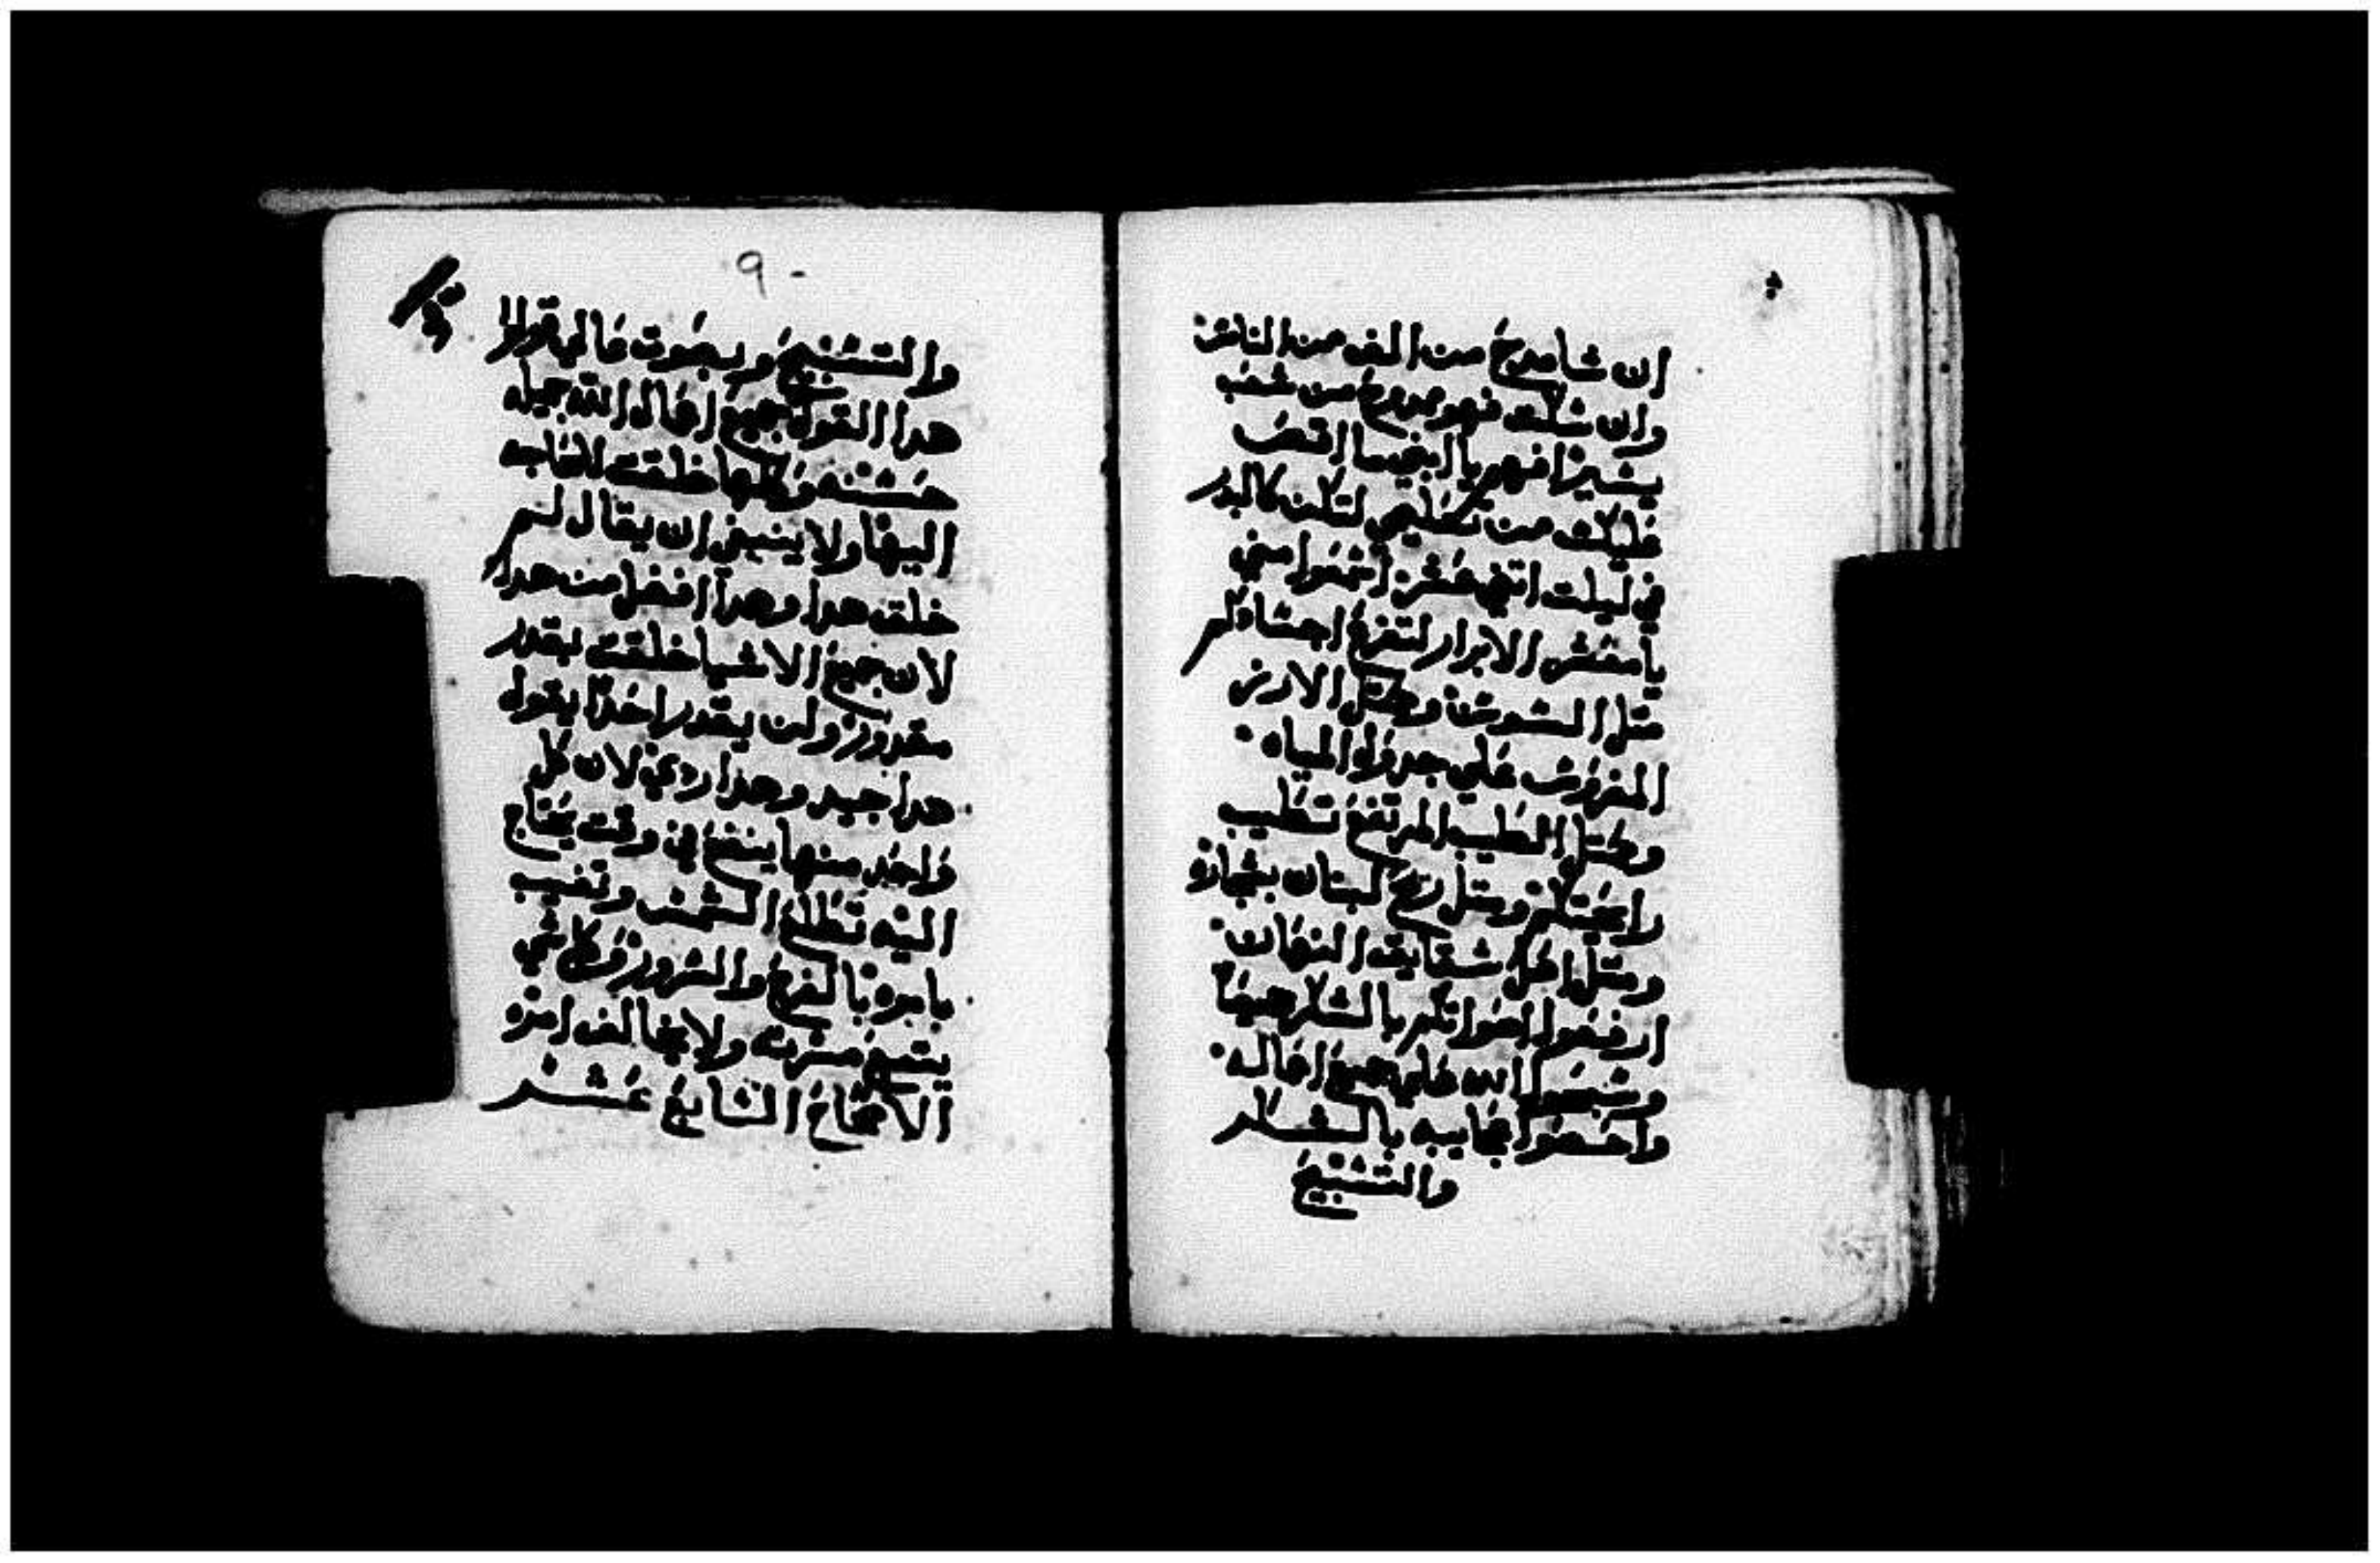 ان شا مدوح من الف من الناس
وان شكت فهو مدوح من شعب
يسير افهم يا ابني ما اقصه
عليك من تعليمي لتكن كالبدر
في ليلت اتني عشر اسمعوا مني
يا معشر الابرار لتفرع اجسادكم
متل السوسن ومتل الارز
المغروس علي جدول المياه
ومتل الطيب المرتفع تطيب
رايحتكم ومتل ريح لبنان بشجاره
ومتل اكل شقايق النعمان
ارفعوا اصواتكم بالشكر جميعا
وسبحوا الله علي جميع اعماله
واخضعوا عجايبه بالشكر
والتسبيح
٩
والتسبيح وبصوت عالي قولو
هدا القول جميع اعمال الله جميله
حسنه وكلها خلقت لانحاجه
اليها ولا ينبغي ان يقال لم
خلق هدا وهدا افضل من هدا
لان جميع الاشيا خلقت بقدر
مقدور ولن يقدر احدًا يقول
هدا جيد وهدا ردي لان كل
واحد منها ينفع في وقت يحتاج
اليه تطلع الشمس وتغيب
بامره بالفرح والسرور وكل شي
يتبع مسرته ولا يخالف امره
الاصحاح السابع عشر